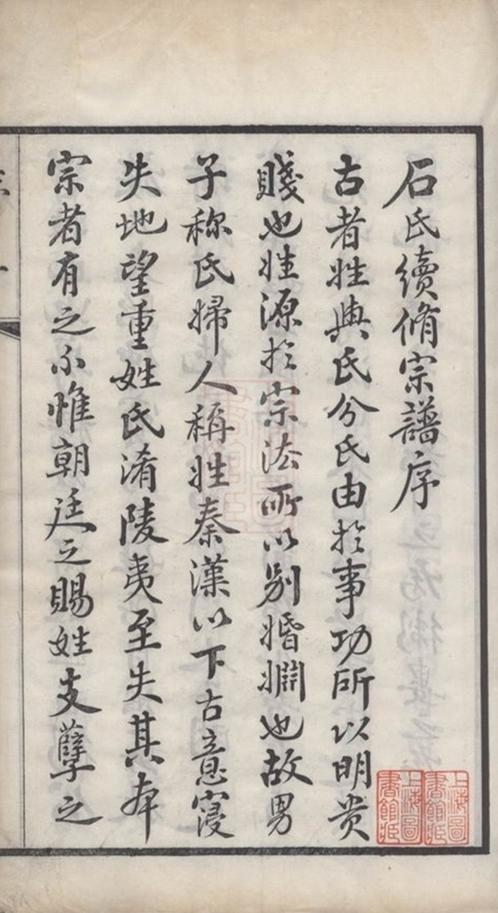 石氏續脩宗譜序
古者姓與氏分氏由於事功所以明貴
賤也姓源於宗法所以別婚姻也故男
子称氏婦人稱姓秦漢以下古意寖
失地望重姓氏淆陵夷至失其本
宗者有之不惟朝廷之賜姓支孽之
上海圖
書館臧
上海圖
書館臧